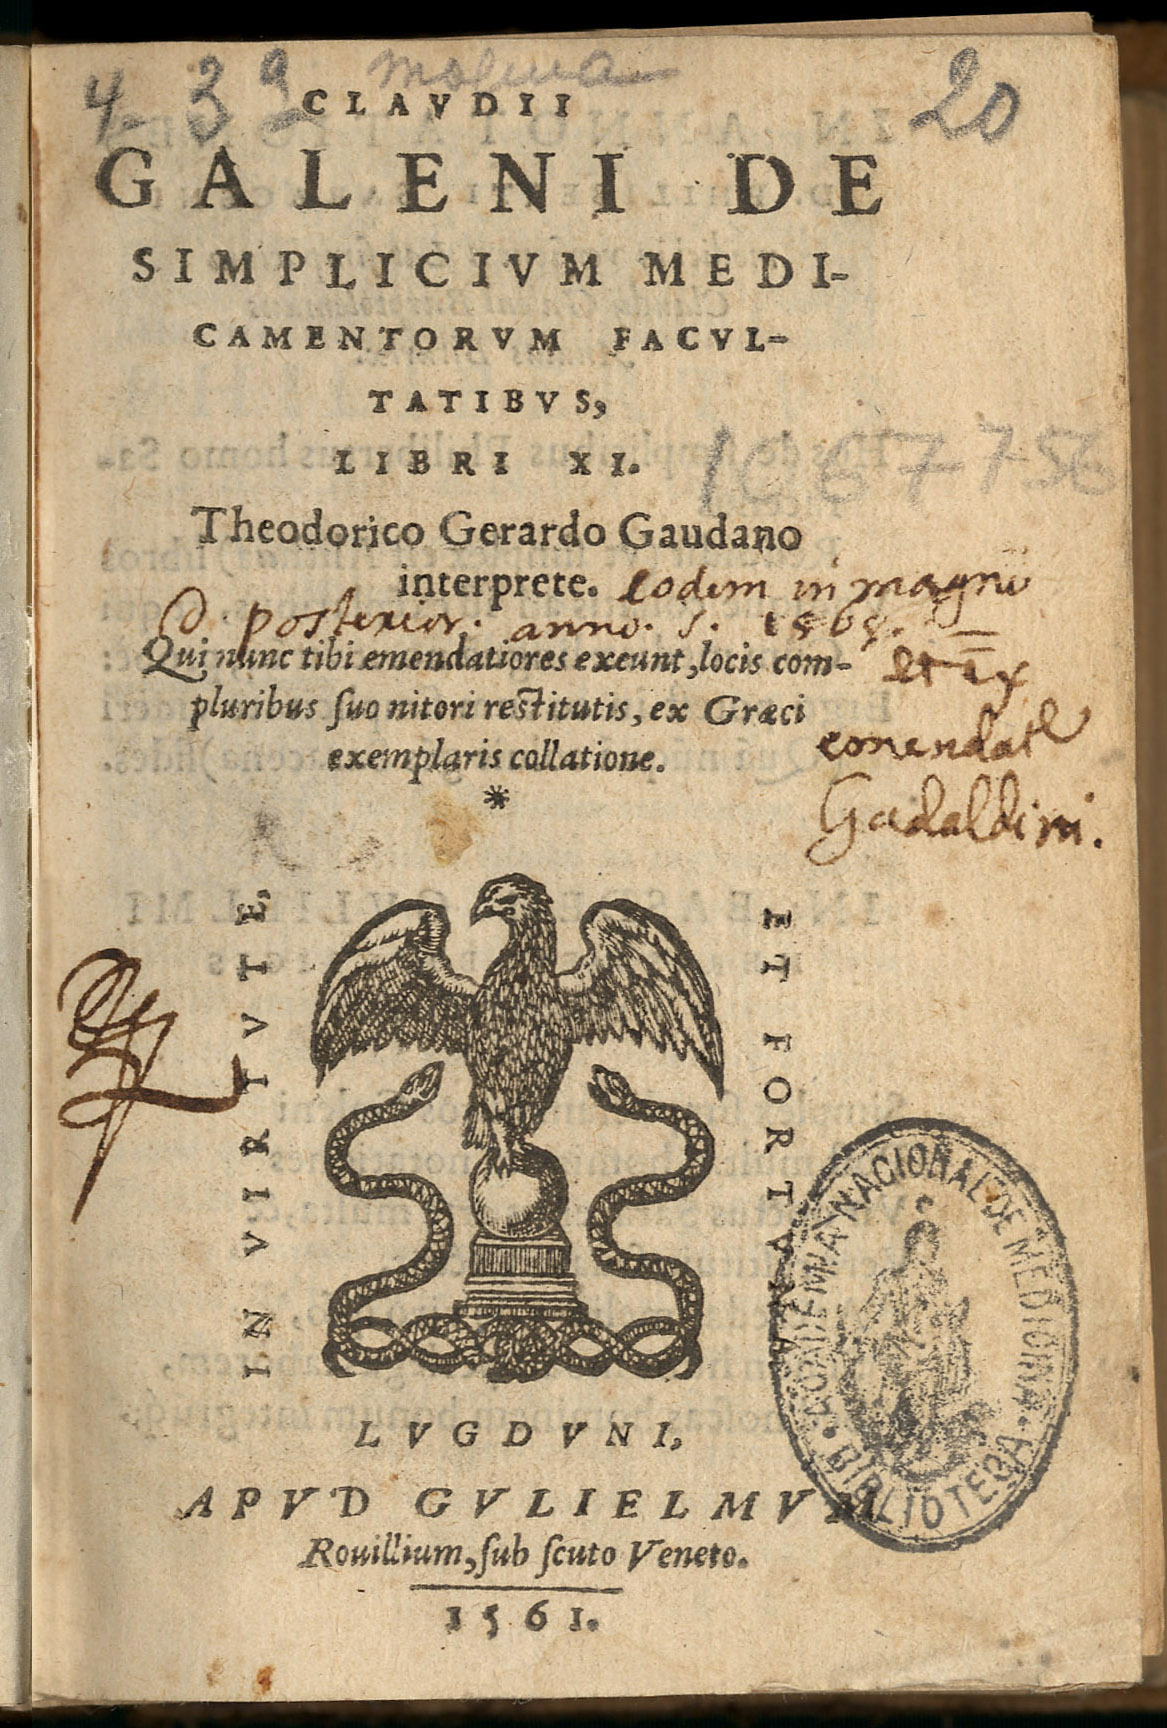 4- 3 9
20
CLAVDII
GALENI DE
SIMPLICIVM MEDI-
CAMENTORVM FACVL-
TATIBVS,
LIBRI XI.
1067756
Theodorico Gerardo Gaudano
interprete. eodem in magno
posterior. anno.
Qui nunc tibi emendatiores exeunt, locis com-
et ex
pluribus ſuo nitori reſtitutis, ex Græci
exemplaris collatione.
Gadaldini.
*
IN VIRTVTE,
ET FORTVNA
ACADEMIA NACIONAL DE MEDICINA
BIBLIOTECA
LVGDVNI,
APVD GVLIELMVM
Rouillium, ſub ſcuto Veneto.
1561.